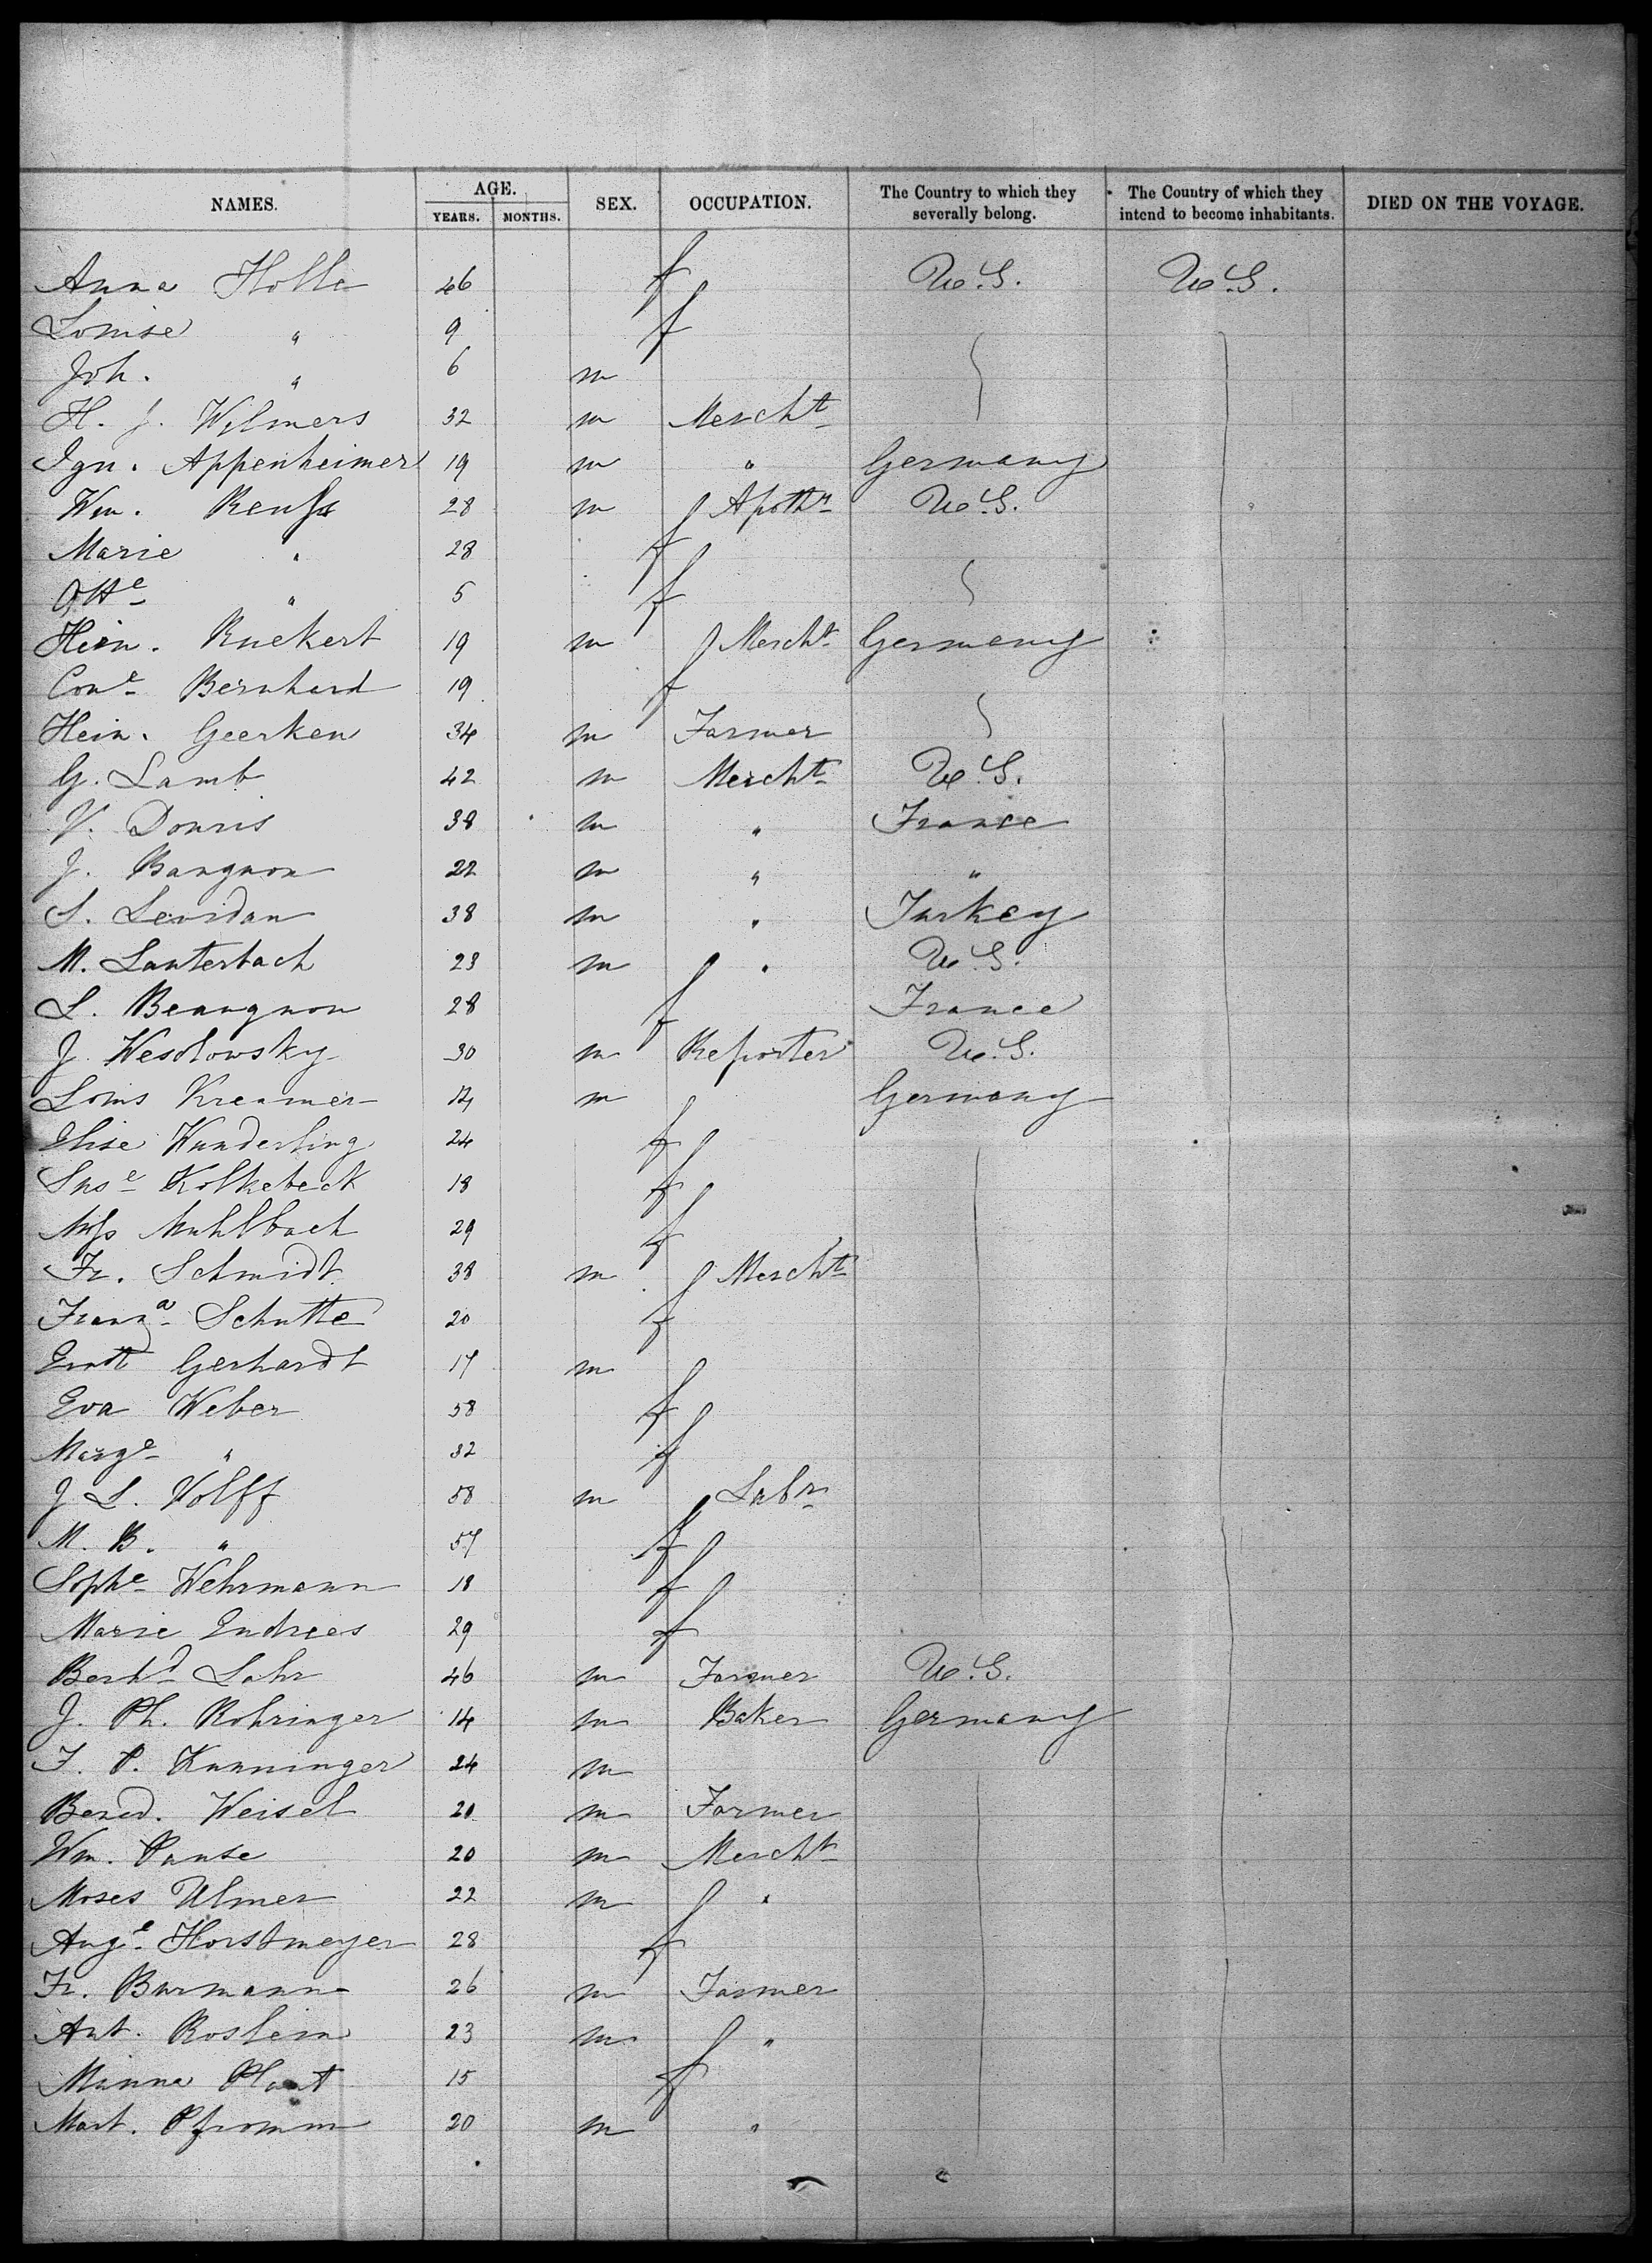 NAMES. AGE. YEARS. MONTHS. SEX. OCCUPATION. The Country to which they severally belong. The Country of which they intend to become inhabitants. DIED ON THE VOYAGE.
Anna Holle 46 f U.S. U.S.
Louise " 9 f
Joh. " 6 m
H. J. Wilmers 32 m Mercht
Ign. Appenheimer 19 m " Germany
Wm. Reuss 28 m Apothr U.S.
Marie " 28 f
Otte " 5 f
Hein. Ruckert 19 m Mercht Germany
Cone Bernhard 19 f
Hein. Geerken 34 m Farmer
G. Lamb 42 m Mercht U.S.
V. Douris 38 m " France
J. Baugnon 22 m " "
S. Levidan 38 m " Turkey
M. Lauterbach 23 m " U.S.
L. Beaugnon 28 f France
J. Wesolowsky 30 m Reporter U.S.
Louis Kreamer m Germany
Elise Wunderling 24 f
Suse Kolkebeck 18 f
Miss Muhlbach 29 f
Fr. Schmidt 38 m Mercht
Franza Schutte 20 f
Erndt Gerhardt 17 m
Eva Weber 58 f
Marge " 32 f
J. L. Wolff 58 m Labr
M. B. " 57 f
Sophe Wehrmann 18 f
Marie Endrees 29 f
Berthd Lohr 46 m Farmer U.S.
J. Ph. Rohringer 14 m Baker Germany
F. P. Kunninger 24 m
Bened. Weisel 20 m Farmer
Wm. Panse 20 m Mercht
Moses Ulmer 22 m "
Auge Horstmeyer 28 f
Fr. Burmann 26 m Farmer
Ant. Roslein 23 m "
Minna 15 f
Mart. Pfromm 20 m "